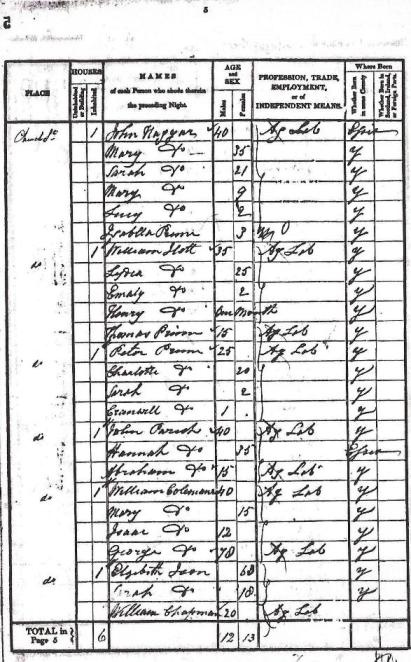 5
5
PLACE HOUSES NAMES AGE and SEX PROFESSION, TRADE, EMPLOYMENT, or of INDEPENDENT MEANS. Where Born
Uninhabited or Building Inhabited of each Person who abode therein the preceding Night. Males Females Whether Born in same County Whether Born in Scotland, Ireland, or Foreign Parts.
Church St 1 John 40 Ag Lab
Mary Do 35 y
Sarah Do 21 y
Mary Do 9 y
Lucy Do 2 y
Isabella 3 y
1 William 35 Ag Lab y
Lydia Do 25 y
Emaly Do 2 y
Henry Do One Month y
Thomas 15 Ag Lab y
do 1 Peter 25 Ag Lab y
Charlotte Do 20 y
Sarah Do 2 y
Do 1 y
do 1 John Parish 40 Ag Lab y
Hannah Do 35
Abraham Do 15 Ag Lab y
do 1 William Coleman 40 Ag Lab y
Mary Do 15 y
Isaac Do 12 y
George Do 70 Ag Lab y
do 1 Elizabeth 60 y
Sarah Do 18 y
William Chapman 20 Ag Lab
TOTAL in Page 5 6 12 13